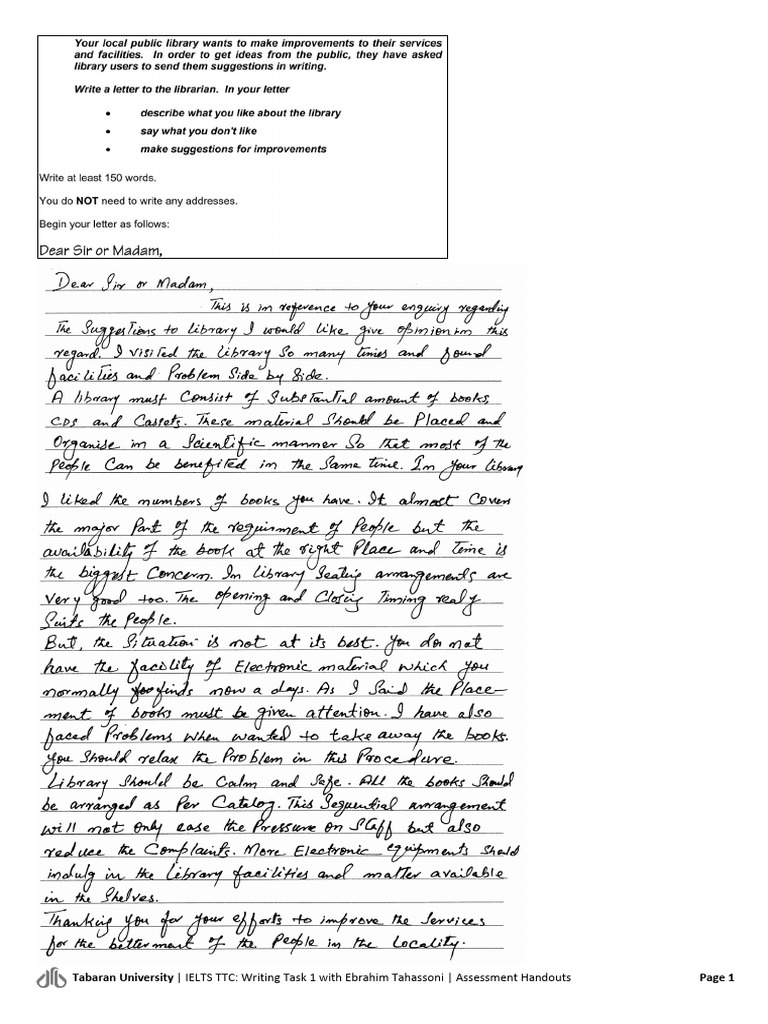 Your local public library wants to make improvements to their services
and facilities. In order to get ideas from the public, they have asked
library users to send them suggestions in writing.
Write a letter to the librarian. In your letter
• describe what you like about the library
• say what you don't like
• make suggestions for improvements
Write at least 150 words.
You do NOT need to write any addresses.
Begin your letter as follows:
Dear Sir or Madam,
Dear Sir or Madam,
This is in reference to your enquiry regarding
The Suggestions to library I would like give opinion in this
regard. I visited the library so many times and found
facilities and Problem Side by Side.
A library must consist of Substantial amount of books
CDs and Cassets. These material Should be Placed and
Organise in a Scientific manner So that most of the
People Can be benefited in the Same time. In your library
I liked the numbers of books you have. It almost Covers
the major Part of the requirment of People but the
availability of the book at the right Place and Time is
the biggest Concern. In library Seating arrangements are
very good too. The opening and Closing Timing realy
Suits the People.
But, the Situation is not at its best. You do not
have the facility of Electronic material which you
normally finds now a days. As I Said the Place-
ment of books must be given attention. I have also
faced Problems when wanted to take away the books.
You Should relax the Problem in this Procedure.
Library Should be Calm and Safe. All the books Should
be arranged as Per Catalog. This Sequential arrangement
will not only ease the Pressure on Staff but also
reduce the Complaints. More Electronic equipments Should
indulg in the library facilities and matter available
in the Shelves.
Thanking you for your efforts to improve the Services
for the betterment of the People in the locality.
Tabaran University | IELTS TTC: Writing Task 1 with Ebrahim Tahassoni | Assessment Handouts Page 1